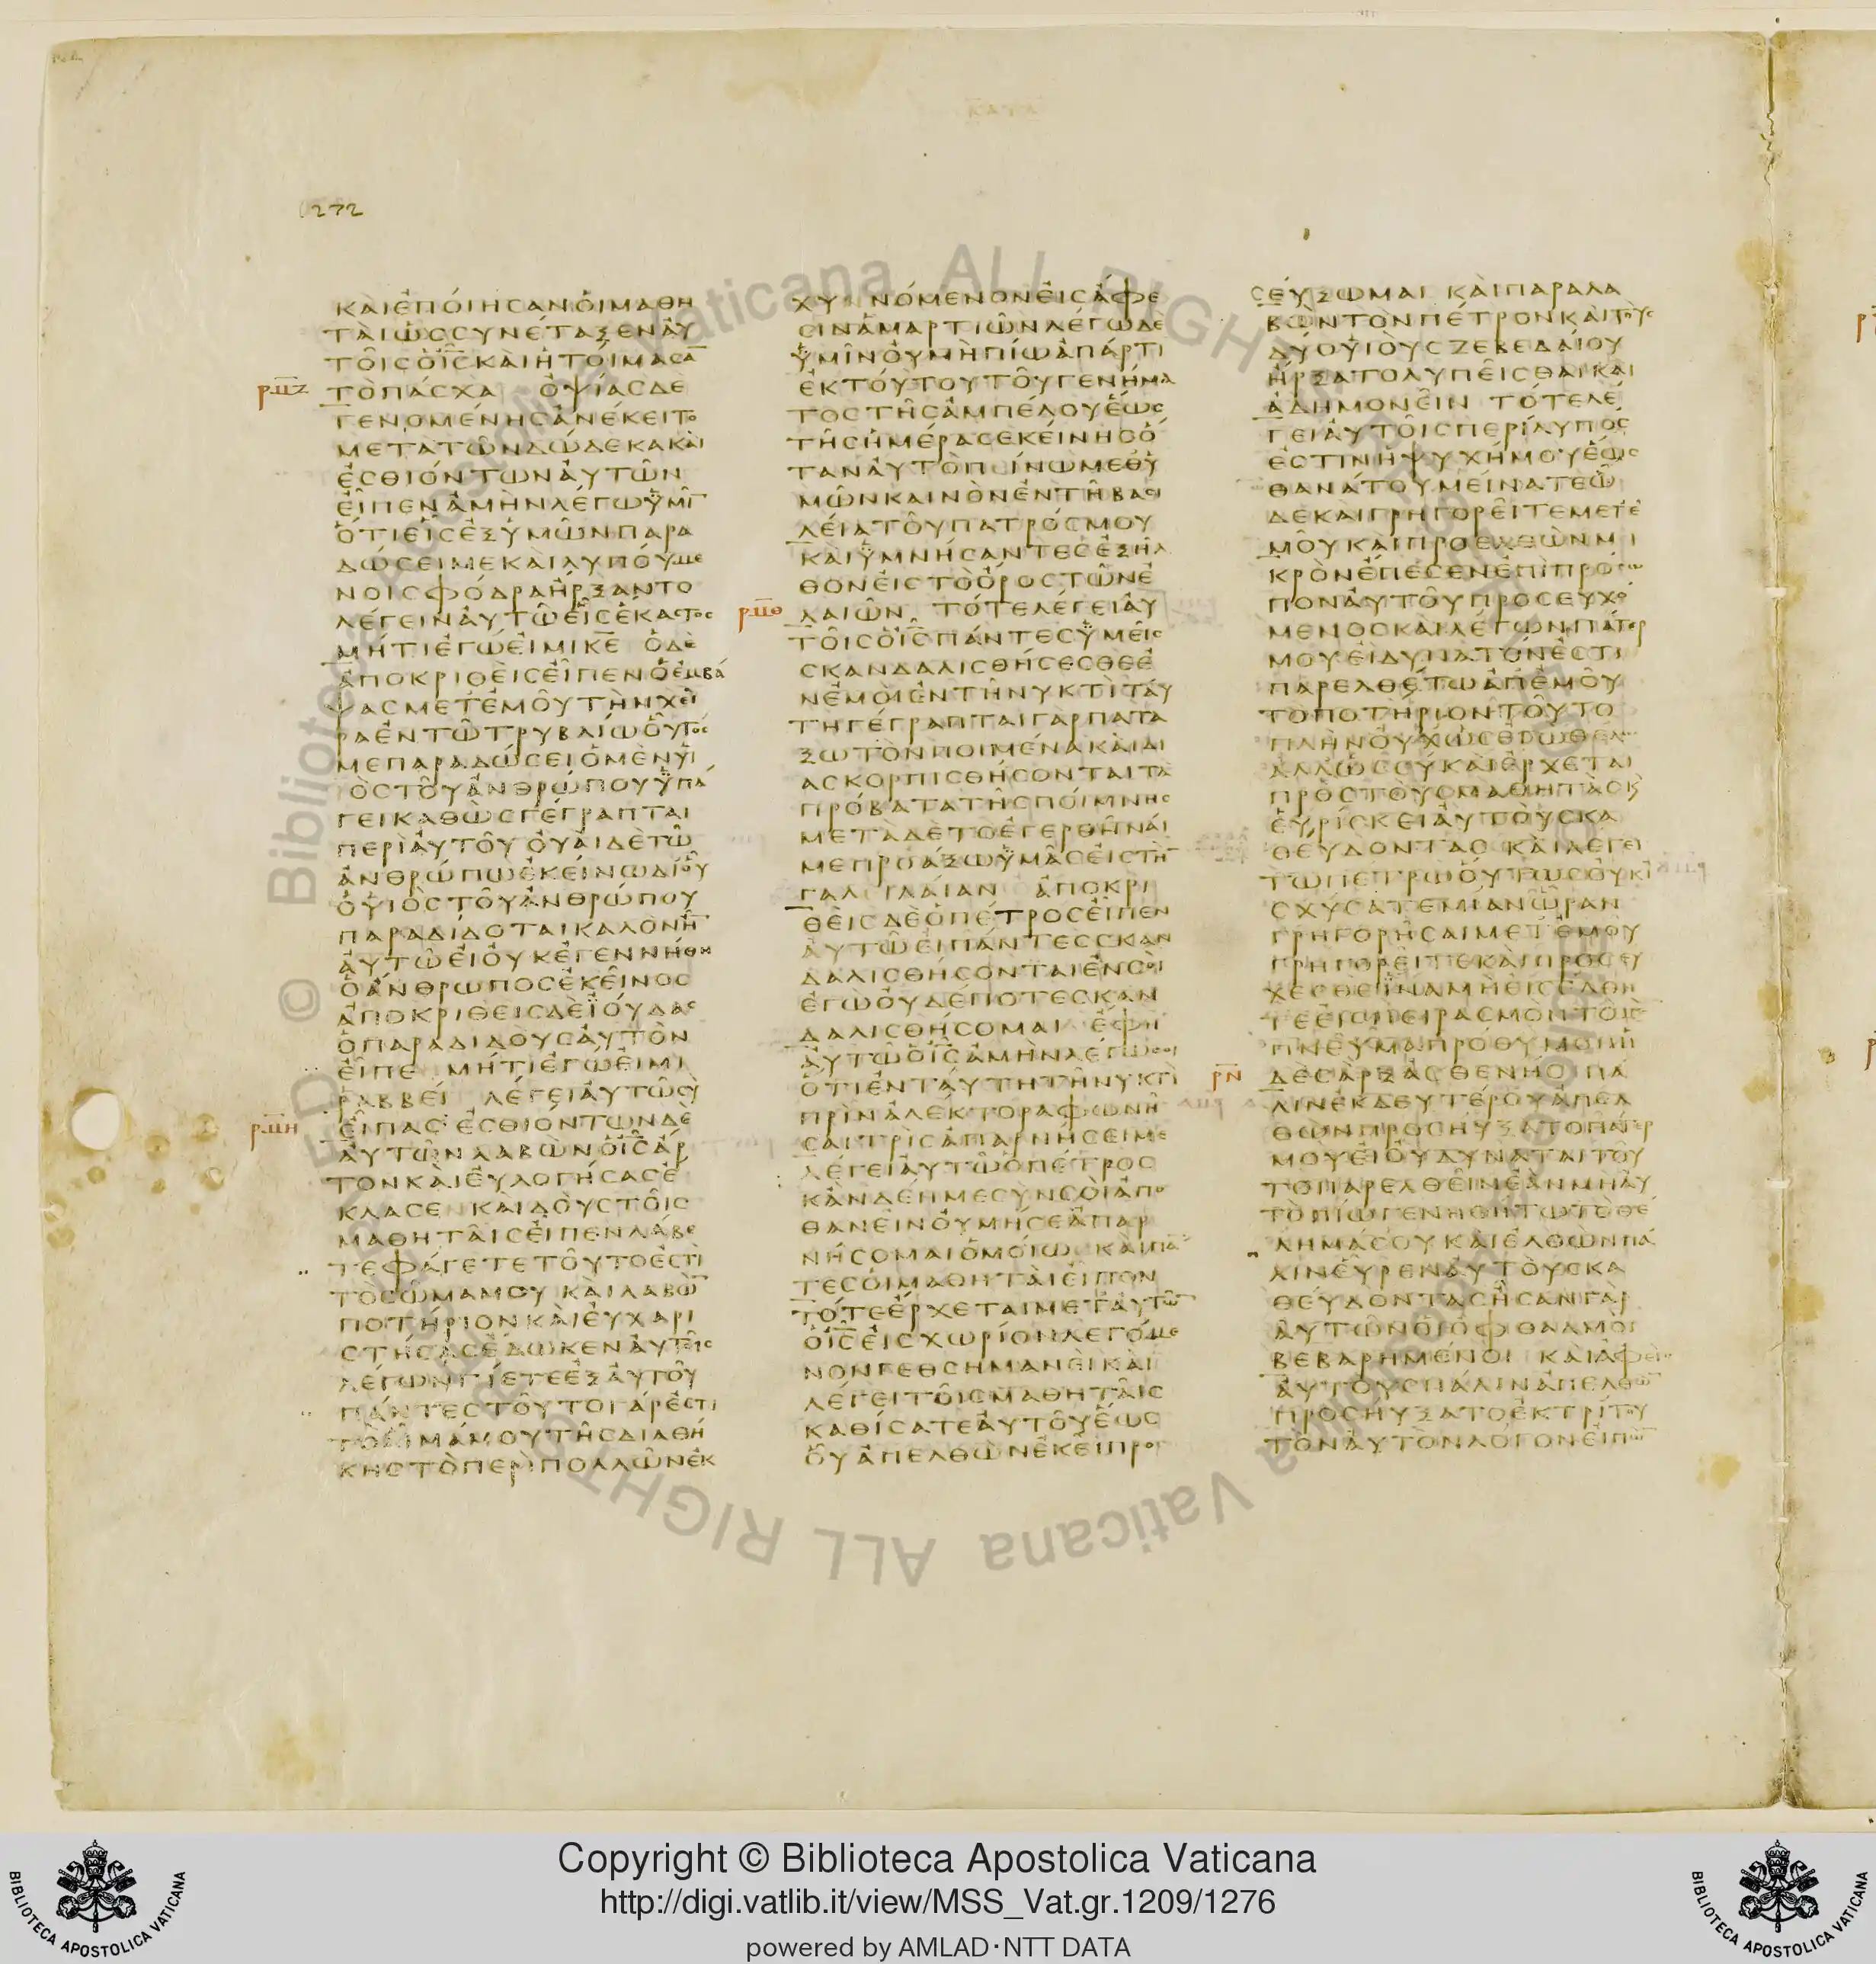 1272
ΚΑΙΕΠΟΙΗΣΑΝΟΙΜΑΘΗ
ΤΑΙΩΣΣΥΝΕΤΑΞΕΝΑΥ
ΤΟΙΣΟΙΣΚΑΙΗΤΟΙΜΑΣΑ̅
ΤΟΠΑΣΧΑ ΟΨΙΑΣΔΕ
ΓΕΝΟΜΕΝΗΣΑΝΕΚΕΙΤΟ
ΜΕΤΑΤΩΝΔΩΔΕΚΑΚΑΙ
ΕΣΘΙΟΝΤΩΝΑΥΤΩΝ
ΕΙΠΕΝΑΜΗΝΛΕΓΩΥΜΙ̅
ΟΤΙΕΙΣΕΞΥΜΩΝΠΑΡΑ
ΔΩΣΕΙΜΕΚΑΙΛΥΠΟΥΜΕ
ΝΟΙΣΦΟΔΡΑΗΡΞΑΝΤΟ
ΛΕΓΕΙΝΑΥΤΩΕΙΣΕΚΑΣΤΟΣ
ΜΗΤΙΕΓΩΕΙΜΙΚ̅Ε̅ ΟΔΕ
ΑΠΟΚΡΙΘΕΙΣΕΙΠΕΝΟΕΜΒΑ
ΨΑΣΜΕΤΕΜΟΥΤΗΝΧΕΙ
ΡΑΕΝΤΩΤΡΥΒΛΙΩΟΥΤΟΣ
ΜΕΠΑΡΑΔΩΣΕΙΟΜΕΝΥΙ
ΟΣΤΟΥΑΝΘΡΩΠΟΥΥΠΑ
ΓΕΙΚΑΘΩΣΓΕΓΡΑΠΤΑΙ
ΠΕΡΙΑΥΤΟΥ ΟΥΑΙΔΕΤΩ
ΑΝΘΡΩΠΩΕΚΕΙΝΩΔΙΟΥ
ΟΥΙΟΣΤΟΥΑΝΘΡΩΠΟΥ
ΠΑΡΑΔΙΔΟΤΑΙΚΑΛΟΝΗ̅
ΑΥΤΩΕΙΟΥΚΕΓΕΝΝΗΘΗ
ΟΑΝΘΡΩΠΟΣΕΚΕΙΝΟΣ
ΑΠΟΚΡΙΘΕΙΣΔΕΙΟΥΔΑΣ
ΟΠΑΡΑΔΙΔΟΥΣΑΥΤΟΝ
ΕΙΠΕ ΜΗΤΙΕΓΩΕΙΜΙ
ΡΑΒΒΕΙ ΛΕΓΕΙΑΥΤΩΣΥ
ΕΙΠΑΣ ΕΣΘΙΟΝΤΩΝΔΕ
ΑΥΤΩΝΛΑΒΩΝΟΙ̅Σ̅ΑΡ
ΤΟΝΚΑΙΕΥΛΟΓΗΣΑΣΕ
ΚΛΑΣΕΝ ΚΑΙΔΟΥΣΤΟΙΣ
ΜΑΘΗΤΑΙΣΕΙΠΕΝΛΑΒΕ
ΤΕΦΑΓΕΤΕΤΟΥΤΟΕΣΤΙ
ΤΟΣΩΜΑΜΟΥ ΚΑΙΛΑΒΩ̅
ΠΟΤΗΡΙΟΝΚΑΙΕΥΧΑΡΙ
ΣΤΗΣΑΣΕΔΩΚΕΝΑΥΤΟΙΣ
ΛΕΓΩΝΠΙΕΤΕΕΞΑΥΤΟΥ
ΠΑΝΤΕΣΤΟΥΤΟΓΑΡΕΣΤΙ
ΤΟΑΙΜΑΜΟΥΤΗΣΔΙΑΘΗ
ΚΗΣΤΟΠΕΡΙΠΟΛΛΩΝΕΚ
ΧΥΝΝΟΜΕΝΟΝΕΙΣΑΦΕ
ΣΙΝΑΜΑΡΤΙΩΝΛΕΓΩΔΕ
ΥΜΙΝΟΥΜΗΠΙΩΑΠΑΡΤΙ
ΕΚΤΟΥΤΟΥΤΟΥΓΕΝΗΜΑ
ΤΟΣΤΗΣΑΜΠΕΛΟΥΕΩΣ
ΤΗΣΗΜΕΡΑΣΕΚΕΙΝΗΣΟ
ΤΑΝΑΥΤΟΠΙΝΩΜΕΘΥ
ΜΩΝΚΑΙΝΟΝΕΝΤΗΒΑΣΙ
ΛΕΙΑΤΟΥΠΑΤΡΟΣΜΟΥ
ΚΑΙΥΜΝΗΣΑΝΤΕΣΕΞΗΛ
ΘΟΝΕΙΣΤΟΟΡΟΣΤΩΝΕ
ΛΑΙΩΝ ΤΟΤΕΛΕΓΕΙΑΥ
ΤΟΙΣΟΙ̅Σ̅ΠΑΝΤΕΣΥΜΕΙΣ
ΣΚΑΝΔΑΛΙΣΘΗΣΕΣΘΕΕ
ΝΕΜΟΙΕΝΤΗΝΥΚΤΙΤΑΥ
ΤΗΓΕΓΡΑΠΤΑΙΓΑΡΠΑΤΑ
ΞΩΤΟΝΠΟΙΜΕΝΑΚΑΙΔΙ
ΑΣΚΟΡΠΙΣΘΗΣΟΝΤΑΙΤΑ
ΠΡΟΒΑΤΑΤΗΣΠΟΙΜΝΗΣ
ΜΕΤΑΔΕΤΟΕΓΕΡΘΗΝΑΙ
ΜΕΠΡΟΑΞΩΥΜΑΣΕΙΣΤΗ̅
ΓΑΛΙΛΑΙΑΝ ΑΠΟΚΡΙ
ΘΕΙΣΔΕΟΠΕΤΡΟΣΕΙΠΕΝ
ΑΥΤΩΕΙΠΑΝΤΕΣΣΚΑΝ
ΔΑΛΙΣΘΗΣΟΝΤΑΙΕΝΣΟΙ
ΕΓΩΟΥΔΕΠΟΤΕΣΚΑΝ
ΔΑΛΙΣΘΗΣΟΜΑΙ ΕΦΗ
ΑΥΤΩΟΙ̅Σ̅ΑΜΗΝΛΕΓΩΣΟΙ
ΟΤΙΕΝΤΑΥΤΗΤΗΝΥΚΤΙ
ΠΡΙΝΑΛΕΚΤΟΡΑΦΩΝΗ
ΣΑΙΤΡΙΣΑΠΑΡΝΗΣΕΙΜΕ
ΛΕΓΕΙΑΥΤΩΟΠΕΤΡΟΣ
ΚΑΝΔΕΗΜΕΣΥΝΣΟΙΑΠΟ
ΘΑΝΕΙΝΟΥΜΗΣΕΑΠΑΡ
ΝΗΣΟΜΑΙΟΜΟΙΩΣΚΑΙΠΑ̅
ΤΕΣΟΙΜΑΘΗΤΑΙΕΙΠΟΝ
ΤΟΤΕΕΡΧΕΤΑΙΜΕΤΑΥΤΩ̅
ΟΙ̅Σ̅ΕΙΣΧΩΡΙΟΝΛΕΓΟΜΕ
ΝΟΝΓΕΘΣΗΜΑΝΕΙΚΑΙ
ΛΕΓΕΙΤΟΙΣΜΑΘΗΤΑΙΣ
ΚΑΘΙΣΑΤΕΑΥΤΟΥΕΩΣ
ΟΥΑΠΕΛΘΩΝΕΚΕΙΠΡΟΣ
ΣΕΥΞΩΜΑΙ ΚΑΙΠΑΡΑΛΑ
ΒΩΝΤΟΝΠΕΤΡΟΝΚΑΙΤΟΥΣ
ΔΥΟΥΙΟΥΣΖΕΒΕΔΑΙΟΥ
ΗΡΞΑΤΟΛΥΠΕΙΣΘΑΙΚΑΙ
ΑΔΗΜΟΝΕΙΝ ΤΟΤΕΛΕ
ΓΕΙΑΥΤΟΙΣΠΕΡΙΛΥΠΟΣ
ΕΣΤΙΝΗΨΥΧΗΜΟΥΕΩΣ
ΘΑΝΑΤΟΥΜΕΙΝΑΤΕΩ
ΔΕΚΑΙΓΡΗΓΟΡΕΙΤΕΜΕΤΕ
ΜΟΥΚΑΙΠΡΟΕΛΘΩΝΜΙ
ΚΡΟΝΕΠΕΣΕΝΕΠΙΠΡΟΣΩ
ΠΟΝΑΥΤΟΥΠΡΟΣΕΥΧΟ
ΜΕΝΟΣΚΑΙΛΕΓΩΝΠΑΤΕΡ
ΜΟΥΕΙΔΥΝΑΤΟΝΕΣΤΙ
ΠΑΡΕΛΘΕΤΩΑΠΕΜΟΥ
ΤΟΠΟΤΗΡΙΟΝΤΟΥΤΟ
ΠΛΗΝΟΥΧΩΣΕΓΩΘΕΛΩ
ΑΛΛΩΣΣΥΚΑΙΕΡΧΕΤΑΙ
ΠΡΟΣΤΟΥΣΜΑΘΗΤΑΣΚ
ΕΥΡΙΣΚΕΙΑΥΤΟΥΣΚΑ
ΘΕΥΔΟΝΤΑΣ ΚΑΙΛΕΓΕΙ
ΤΩΠΕΤΡΩΟΥΤΩΣΟΥΚΙ
ΣΧΥΣΑΤΕΜΙΑΝΩΡΑΝ
ΓΡΗΓΟΡΗΣΑΙΜΕΤΕΜΟΥ
ΓΡΗΓΟΡΕΙΤΕΚΑΙΠΡΟΣΕΥ
ΧΕΣΘΕΙΝΑΜΗΕΙΣΕΛΘΗ
ΤΕΕΙΣΠΕΙΡΑΣΜΟΝΤΟΜΕ̅
ΠΝΕΥΜΑΠΡΟΘΥΜΟΝΗ
ΔΕΣΑΡΞΑΣΘΕΝΗΣΠΑ
ΛΙΝΕΚΔΕΥΤΕΡΟΥΑΠΕΛ
ΘΩΝΠΡΟΣΗΥΞΑΤΟΠΑΤΕΡ
ΜΟΥΕΙΟΥΔΥΝΑΤΑΙΤΟΥ
ΤΟΠΑΡΕΛΘΕΙΝΕΑΝΜΗΑΥ
ΤΟΠΙΩΓΕΝΗΘΗΤΩΤΟΘΕ
ΛΗΜΑΣΟΥΚΑΙΕΛΘΩΝΠΑ
ΛΙΝΕΥΡΕΝΑΥΤΟΥΣΚΑ
ΘΕΥΔΟΝΤΑΣΗΣΑΝΓΑΡ
ΑΥΤΩΝΟΙΟΦΘΑΛΜΟΙ
ΒΕΒΑΡΗΜΕΝΟΙ ΚΑΙΑΦΕΙΣ
ΑΥΤΟΥΣΠΑΛΙΝΑΠΕΛΘΩ̅
ΠΡΟΣΗΥΞΑΤΟΕΚΤΡΙΤΟΥ
ΤΟΝΑΥΤΟΝΛΟΓΟΝΕΙΠΩ̅
Copyright © Biblioteca Apostolica Vaticana
http://digi.vatlib.it/view/MSS_Vat.gr.1209/1276
powered by AMLAD·NTT DATA